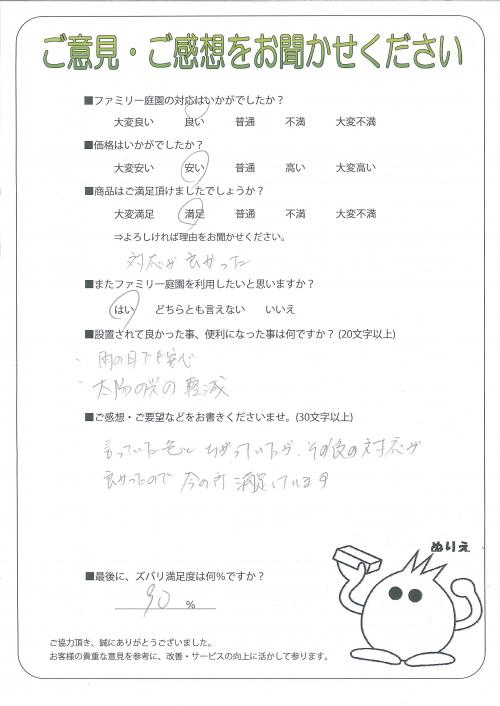 ご意見・ご感想をお聞かせください
■ファミリー庭園の対応はいかがでしたか？
大変良い 良い 普通 不満 大変不満
■価格はいかがでしたか？
大変安い 安い 普通 高い 大変高い
■商品はご満足頂けましたでしょうか？
大変満足 満足 普通 不満 大変不満
⇒よろしければ理由をお聞かせください。
対応が良かった
■またファミリー庭園を利用したいと思いますか？
はい どちらとも言えない いいえ
■設置されて良かった事、便利になった事は何ですか？(20文字以上)
、雨の日でも安心
、太陽の光の軽減
■ご感想・ご要望などをお書きくださいませ。(30文字以上)
言っていた色とちがっていたが、その後の対応が
良かったので 今の所 満足しています
ぬりえ
■最後に、ズバリ満足度は何%ですか？
90 %
ご協力頂き、誠にありがとうございました。
お客様の貴重な意見を参考に、改善・サービスの向上に活かして参ります。